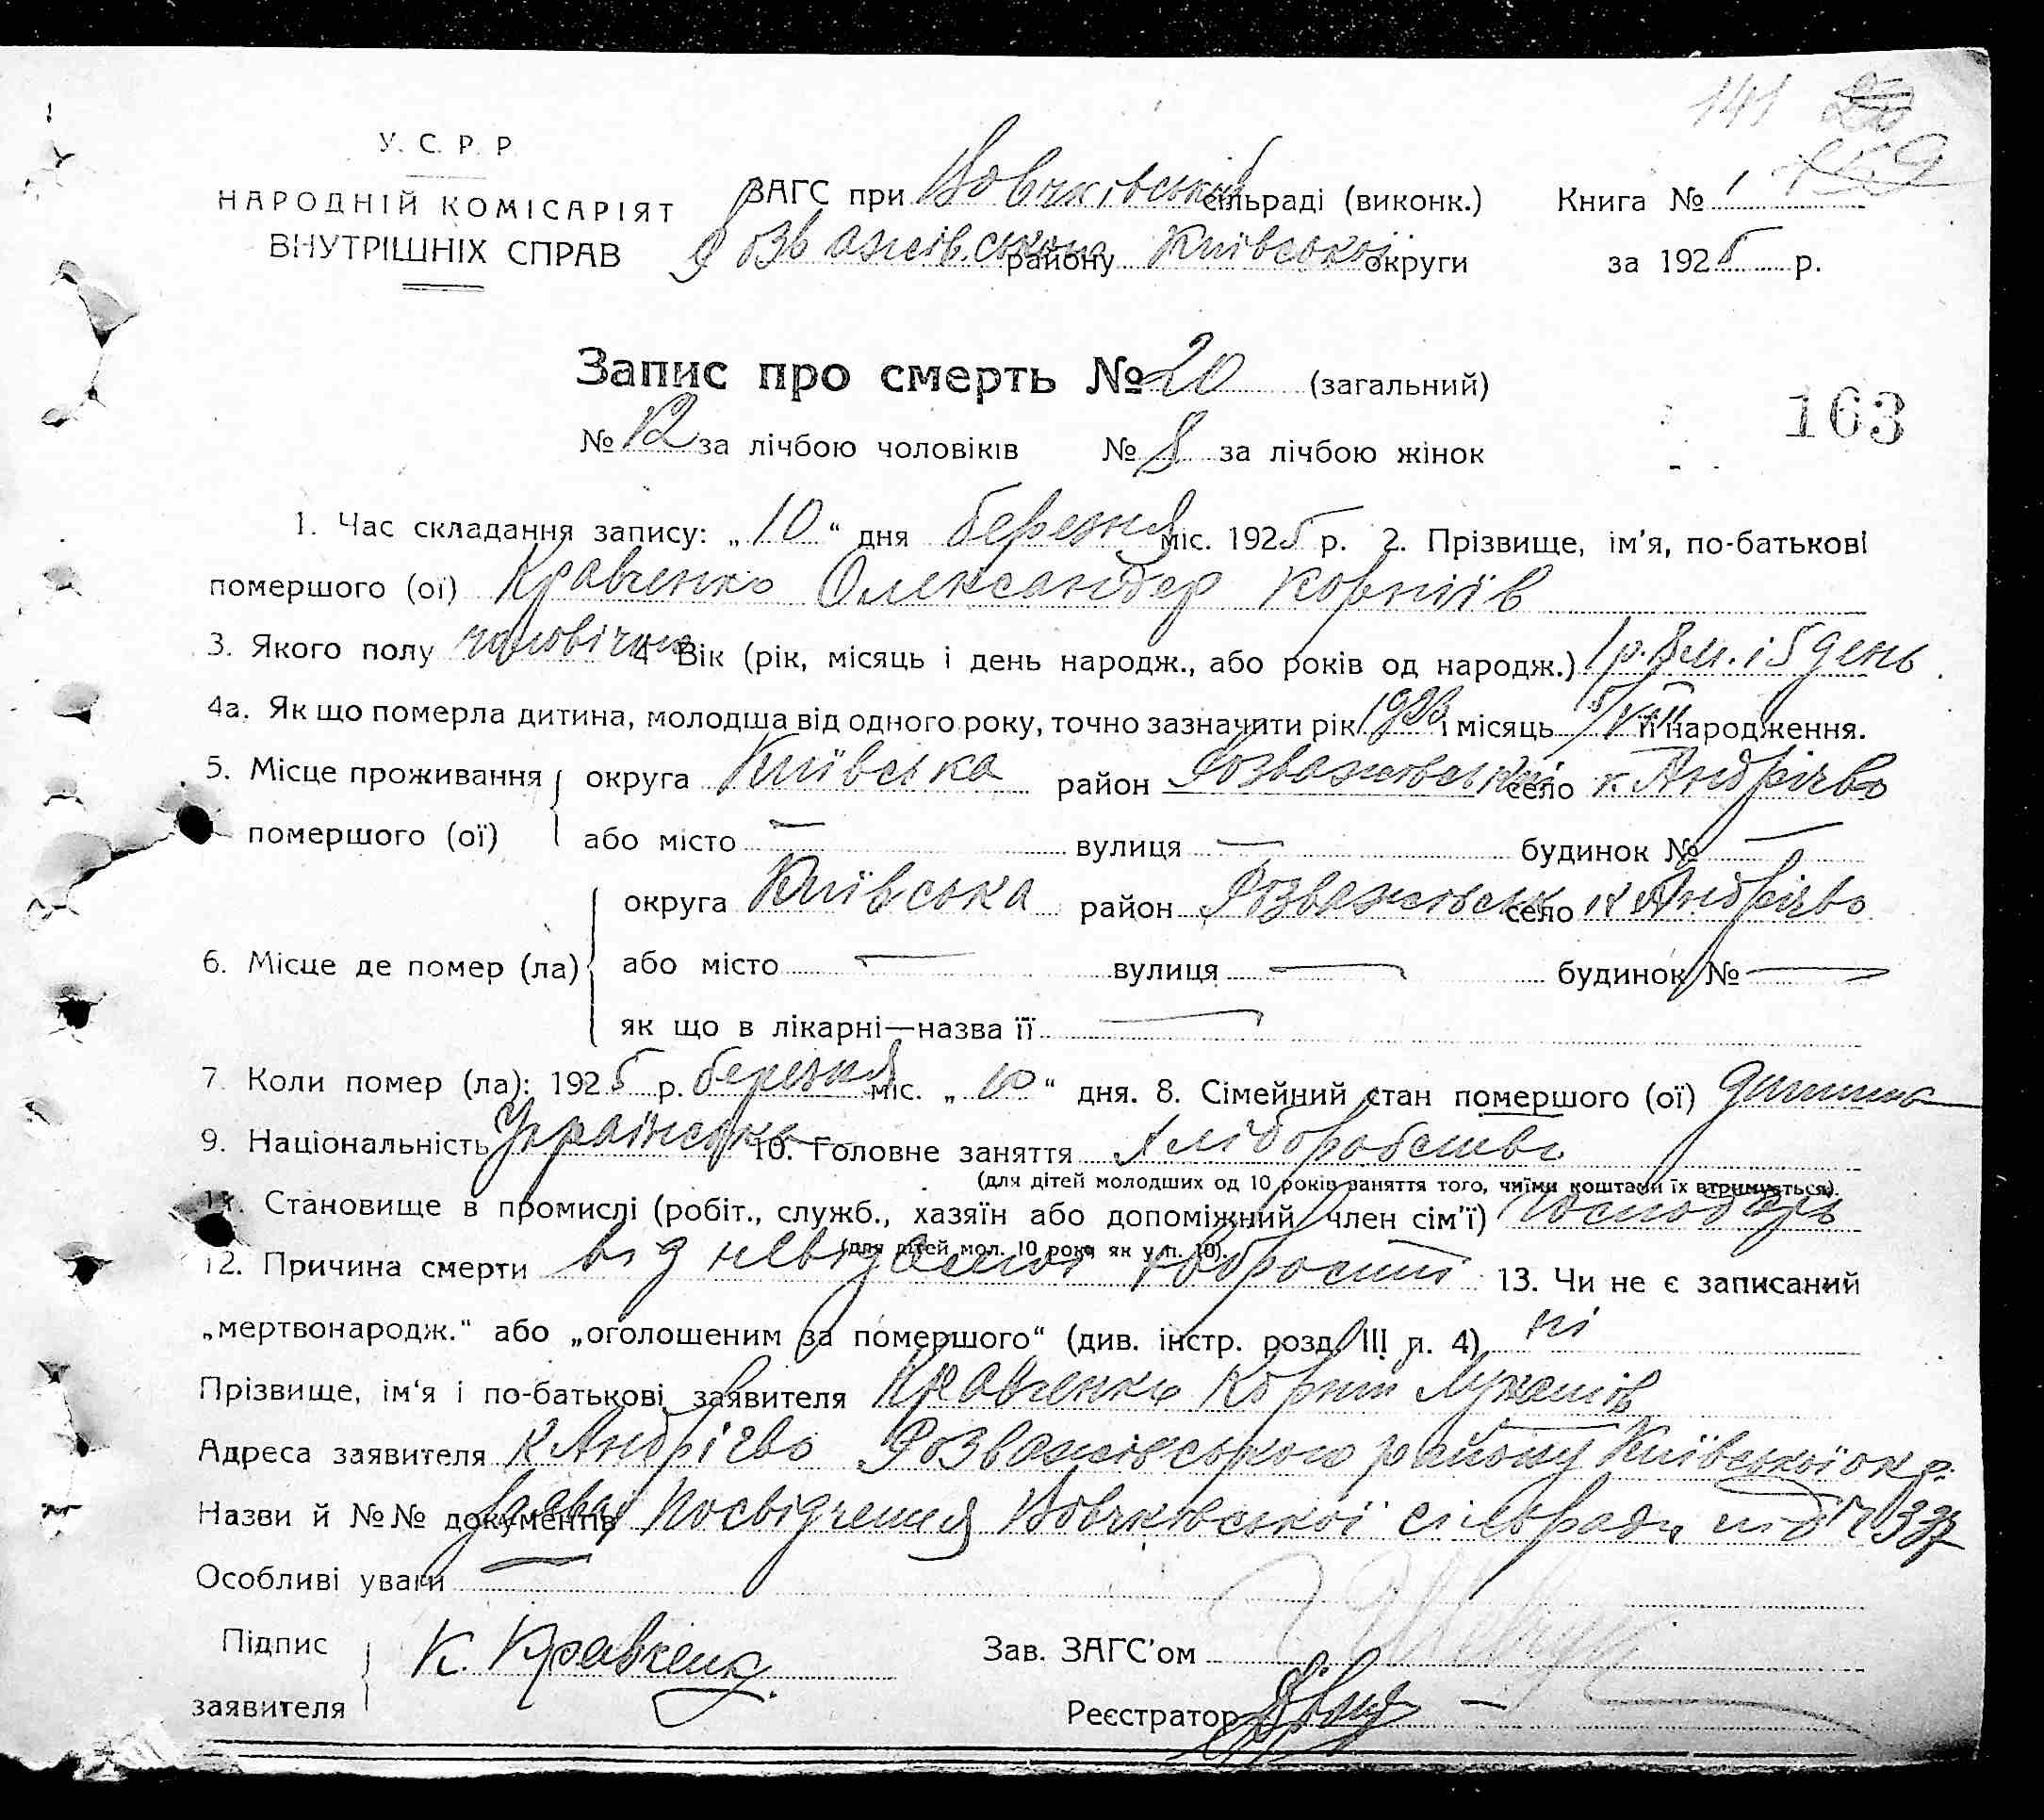 141 20
У. С. Р. Р.
НАРОДНІЙ КОМІСАРІЯТ
ВНУТРІШНІХ СПРАВ
ЗАГС при Вовчківській сільраді (виконк.) Книга № 1
Розважівського району Київської округи за 1925 р.
Запис про смерть № 20 (загальний)
163
№ 12 за лічбою чоловіків № 8 за лічбою жінок
1. Час складання запису: „10“ дня березня міс. 1925 р. 2. Прізвище, ім'я, по-батькові
помершого (ої) Кравченко Олександер Корніїв
3. Якого полу чоловічого 4 Вік (рік, місяць і день народж., або років од народж.) 1 р. 8 м. і 5 день
4а. Як що померла дитина, молодша від одного року, точно зазначити рік 1923 і місяць 5/VII її народження.
5. Місце проживання округа Київська район Розважівський село к. Андріїво
помершого (ої) або місто — вулиця — будинок № —
округа Київська район Розважівськ село к Андріїво
6. Місце де помер (ла) або місто — вулиця — будинок № —
як що в лікарні—назва її —
7. Коли помер (ла): 1925 р. березня міс. „10“ дня. 8. Сімейний стан помершого (ої) дитина
9. Національність Українська 10. Головне заняття хліборобство
(для дітей молодших од 10 років заняття того, чиїми коштами їх втримується).
11. Становище в промислі (робіт., служб., хазяїн або допоміжний член сім'ї) господарь
(для дітей мол. 10 років як у п. 10).
12. Причина смерти від невідомої хобрості 13. Чи не є записаний
„мертвонародж.“ або „оголошеним за помершого“ (див. інстр. розд. III п. 4) ні
Прізвище, ім'я і по-батькові заявителя Кравченко Корній Лукашів
Адреса заявителя к Андріїво Розважівського району Київської окр.
Назви й №№ документів заява Посвідчення Вовчківської сільради від №
Особливі уваги —
Підпис К. Кравченко Зав. ЗАГС'ом
заявителя Реєстратор